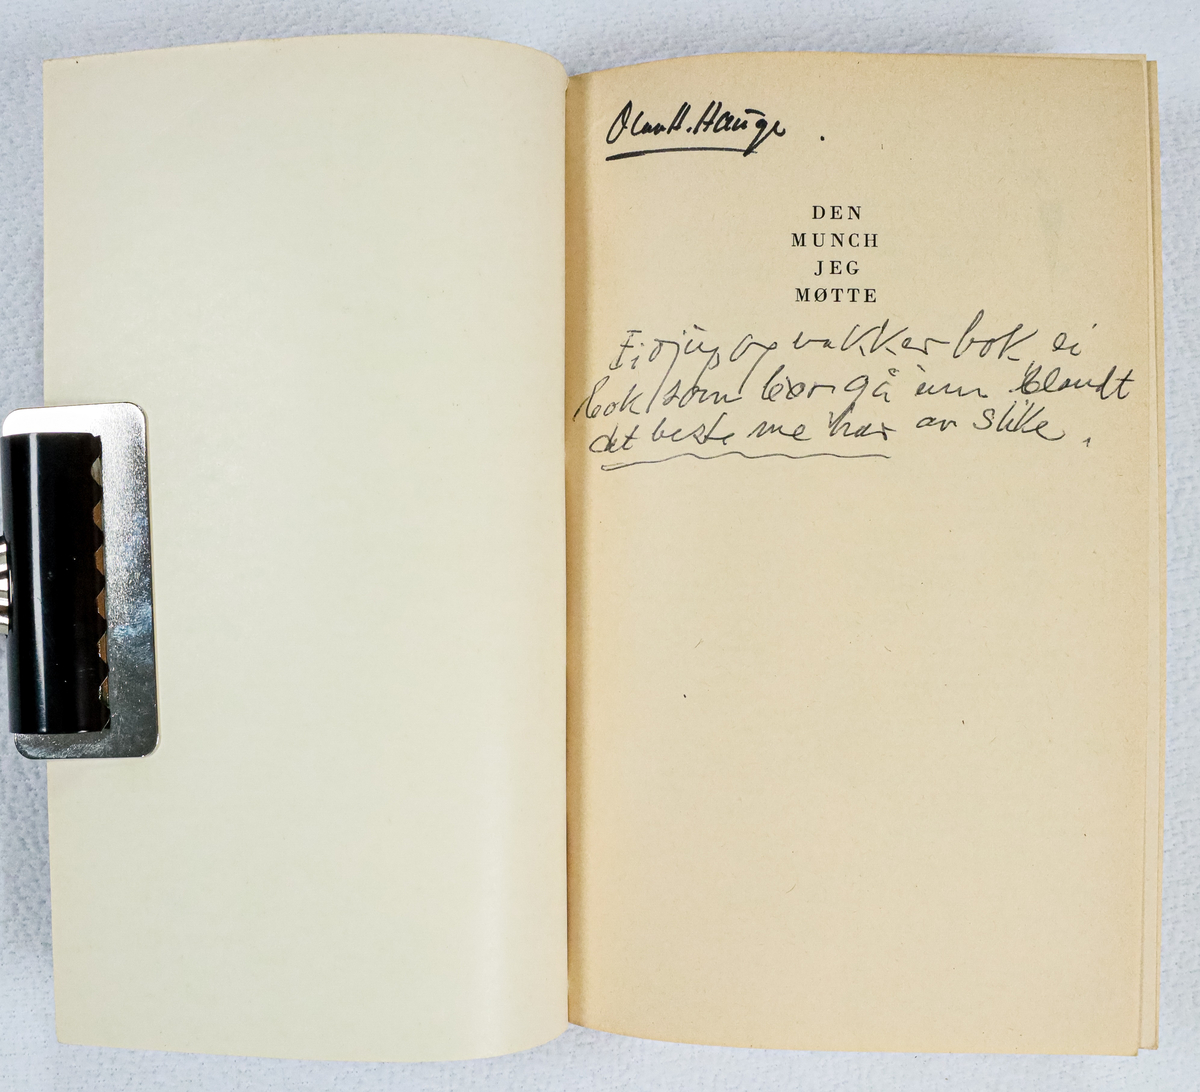 Olav H. Hauge
DEN
MUNCH
JEG
MØTTE
Ei djup og vakker bok, ei
bok som bør gå inn blandt
det beste me har av slike.